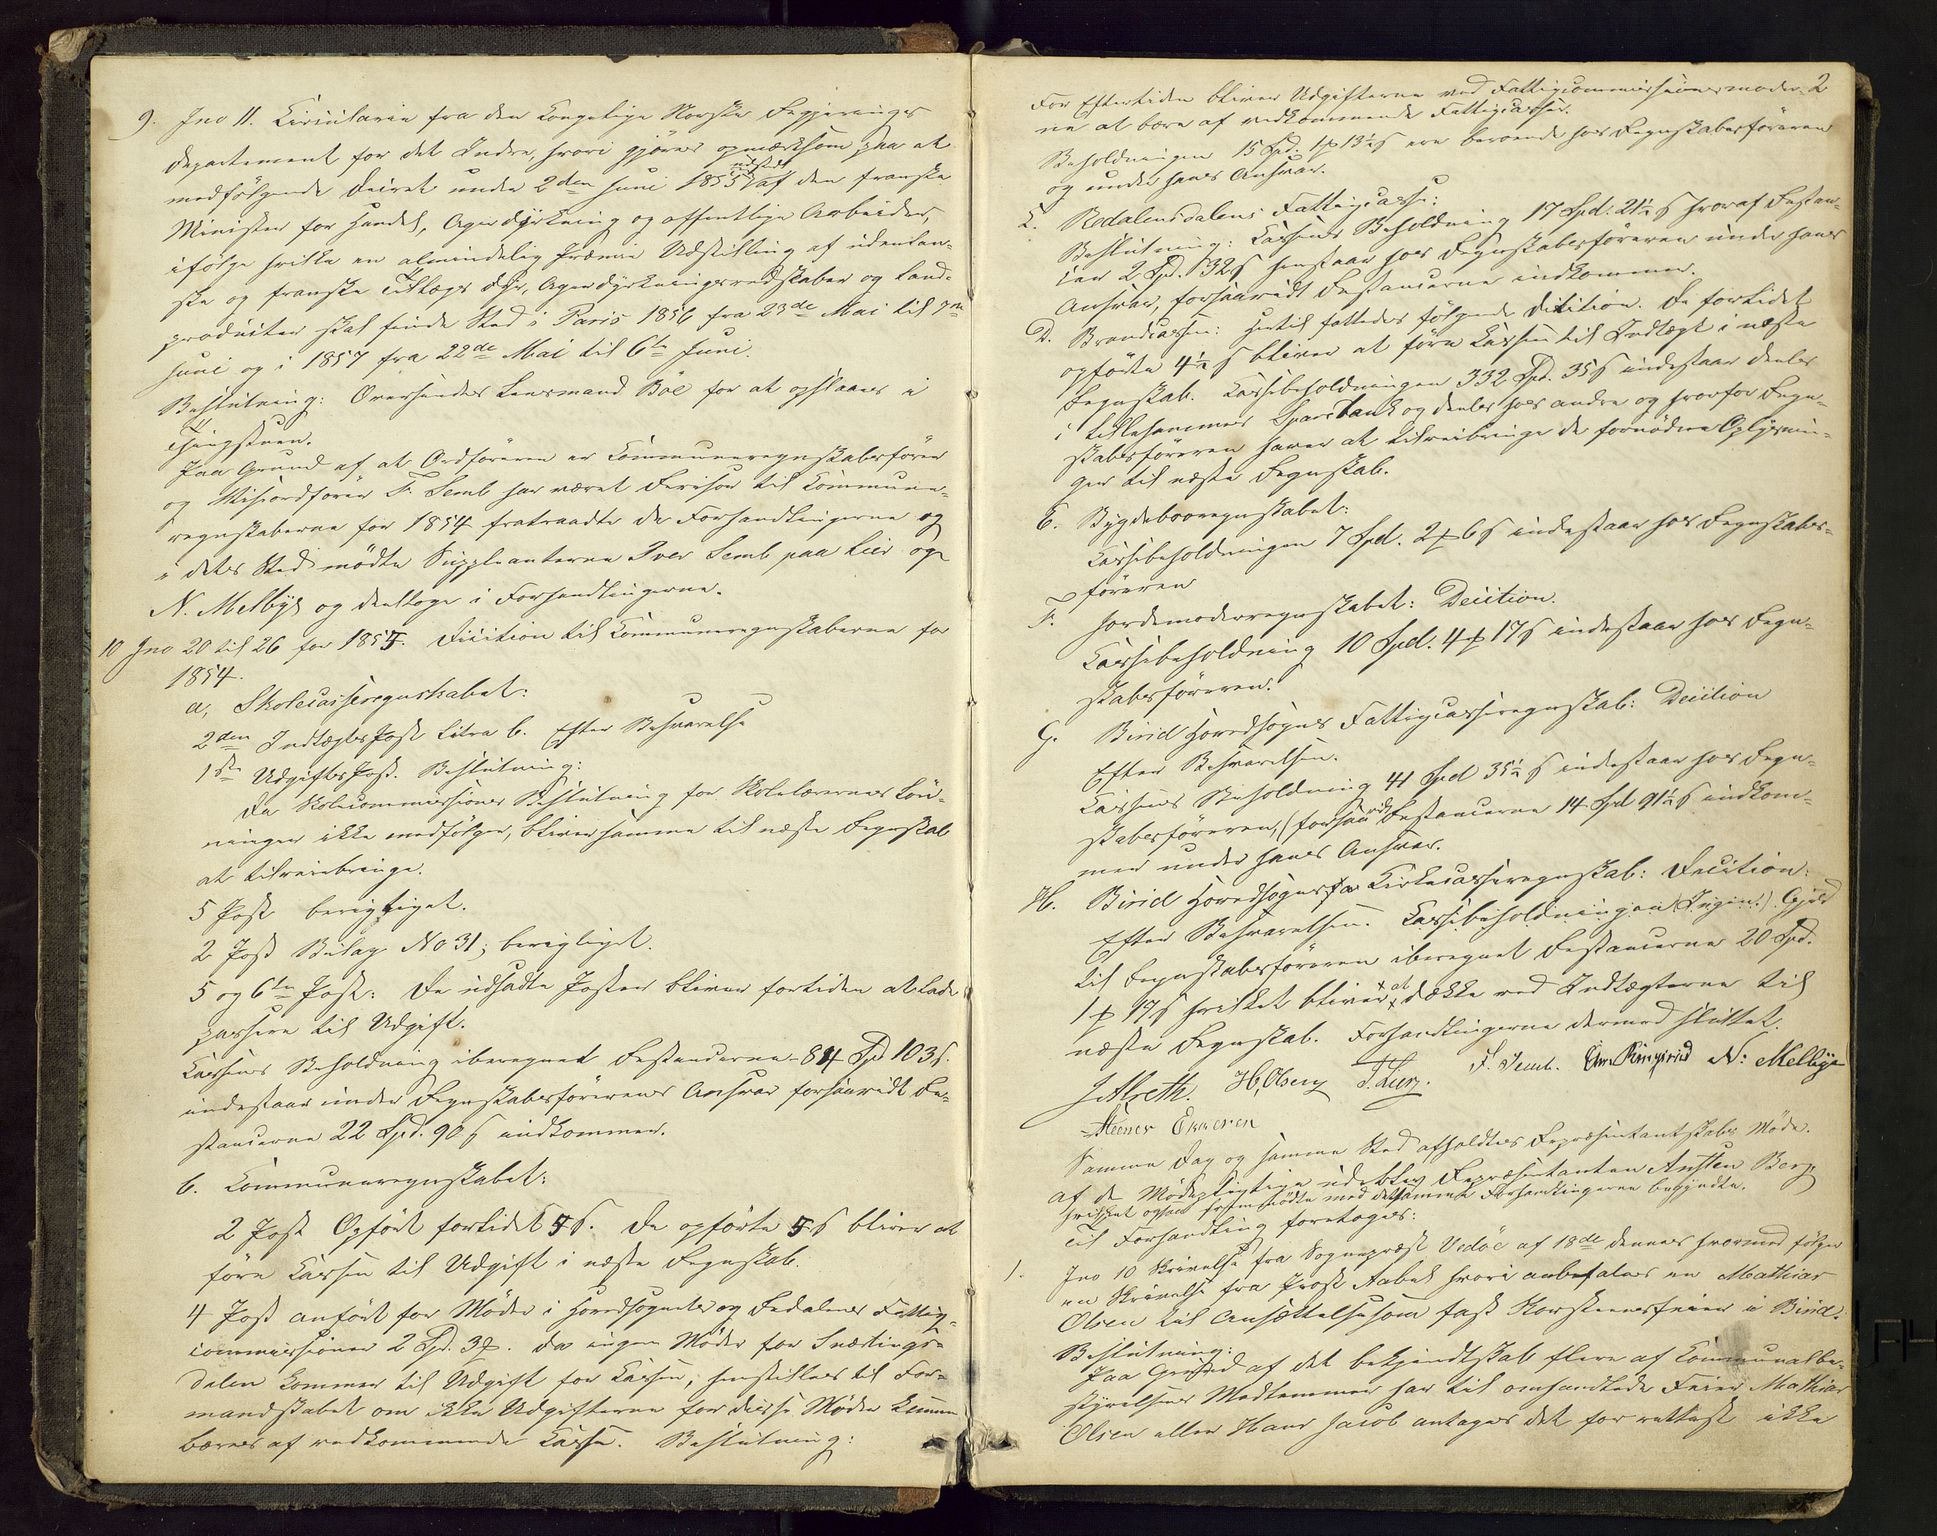 9. Jno 11. Circulaire fra den Kongelige Norske Regjerings
Departement for det Indre, hvori gjøres opmærksom paa at
medfølgende Decret under 2den Juni 1855 udstedt af den franske
Minister for Handel, Agerdyrkning og offentlige Arbeider,
ifølge hvilke en almindelig Præmie Udstilling af udenlan-
ske og franske Tillægs dyr, Agerdyrkningsredskaber og Land-
producter skal finde Sted i Paris 1856 fra 23de Mai til 7de
Juni og i 1857 fra 22de Mai til 6te Juni.
Beslutning: Oversendes Lensmand Böe for at opslaaes i
Thingstuen.
Paa Grund af at Ordføreren er Kommuneregnskabsfører
og Viseordfører F. Semb har været Revisor til Kommune-
regnskaberne for 1854 fratraadte de Forhandlingerne og
i deres Sted mødte Suppleanterne Iver Semb paa Lier og
N. Melbye og deeltoge i Forhandlingerne.
10 Jno 20 til 26 for 1855. Decition til Kommuneregnskaberne for
1854.
a, Skolecasseregnskabet:
2den Indtægts Post Litra b. Efter Besvarelse
1ste Udgifts Post. Beslutning:
Da Skolecommissionens Beslutning for Skolelærernes Løn-
ninger ikke medfølger, bliver samme til næste Regnskab
at tilveiebringe.
5 Post berigtiget.
2 Post Bilag No 31, berigtiget.
5 og 6te Post: De udsadte Poster bliver fortiden at lade
passere til Udgift.
Cassens Beholdning iberegnet Restancerne 84 Spd 103 ß.
indestaar under Regnskabsførerens Ansvar forsaavidt Re-
stancerne 22 Spd. 90 ß indkommer.
b. Communeregnskabet:
2 Post Opført fortidet 5 ß. De opførte 5 ß bliver at
føre Cassen til Udgift i næste Regnskab.
4 Post anført for Møder i Hovedsognets og Redalens Fattig-
commissioner 2 Spd. 3 ₰. Da ingen Møder for Snertings-
dalen kommer til Udgift for Cassen; henstilles til For-
mandskabet om ikke Udgifterne for disse Møder kunne
bæres af vedkommende Casse. Beslutning:
2
For Eftertiden bliver Udgifterne ved Fattigcommissionsmøder-
ne at bære af vedkommende Fattigcasser.
Beholdningen 15 Spd. 1 ₰ 13½ ß ere beroende hos Regnskabsføreren
og under hans Ansvar.
C. Redalensdalens Fattigcasse:
Beslutning: Cassens Beholdning 17 Spd. 21½ ß hvoraf Restan-
cer 2 Spd. 32 ß henstaar hos Regnskabsføreren under hans
Ansvar, forsaavidt Restancerne indkommer.
D. Brandcassen: Hertil fattedes følgende Decition. De fortidet
opførte 4½ ß bliver at føre Cassen til Indtægt i næste
Regnskab. Cassebeholdningen 332 Spd. 35 ß indestaar deels
i Lillehammers Sparebank og deels hos andre og hvorfor Regn-
skabsføreren haver at tilveiebringe de fornødne Oplysnin-
ger til næste Regnskab.
E. Bygdebooregnskabet:
Cassebeholdningen 7 Spd. 2 ₰ 6 ß indestaar hos Regnskabs-
føreren
F. Jordemoderregnskabet: Decition.
Cassebeholdning 10 Spd. 4 ₰ 17 ß indestaar hos Regn-
skabsføreren.
G. Birid Hovedsogns Fattigcasseregnskab: Decition
Efter Besvarelsen.
Cassens Beholdning 41 Spd 35½ ß indestaar hos Regn-
skabsføreren, (forsaavidt Restancerne 14 Spd 91½ ß indkom-
mer under hans Ansvar.
H. Birid Hovedsogns Kirkecasseregnskab: Decition:
Efter Besvarelsen. Cassebeholdningen (Ingen.) Gjæld
til Regnskabsføreren iberegnet Restancerne 20 Spd.
1 ₰ 17 ß hvilket bliver at dække ved Indtægterne til
næste Regnskab. Forhandlingerne dermed sluttet.
J Alseth. H, Olsen F. Semb. N: Melbye
Steener Everen
Samme Dag og samme Sted afholdtes Repræsentantskabs Møde.
af de Mødepligtige udeblev Repræsentanten Austen Berg
hvilket ogsaa fremmødte med detsamme Forhandlingerne begyndte.
Til Forhandling foretoges:
1. Jno 10 Skrivelse fra Sognepræst Vedöe af 18de dennes hvormed følger
en Skrivelse fra Provst Aabel hvori anbefales en Mathias
Olsen til Ansættelse som fast Skorsteensfeier i Birid.
Beslutning:
Paa Grund af det bekjendtskab flere af Communalbe-
styrelsens Medlemmer har til omhandlede Feier Mathias
Olsen eller Hans Jacob antages det for rettest ikke